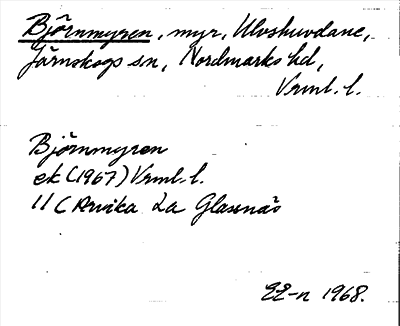 Björnmyren, myr, Ulvshuvdane,
Järnskogs sn, Nordmarks hd,
Vrml. l.
Björnmyren
ek (1967) Vrml. l.
11C Arvika La Glasnäs
EE-n 1968.